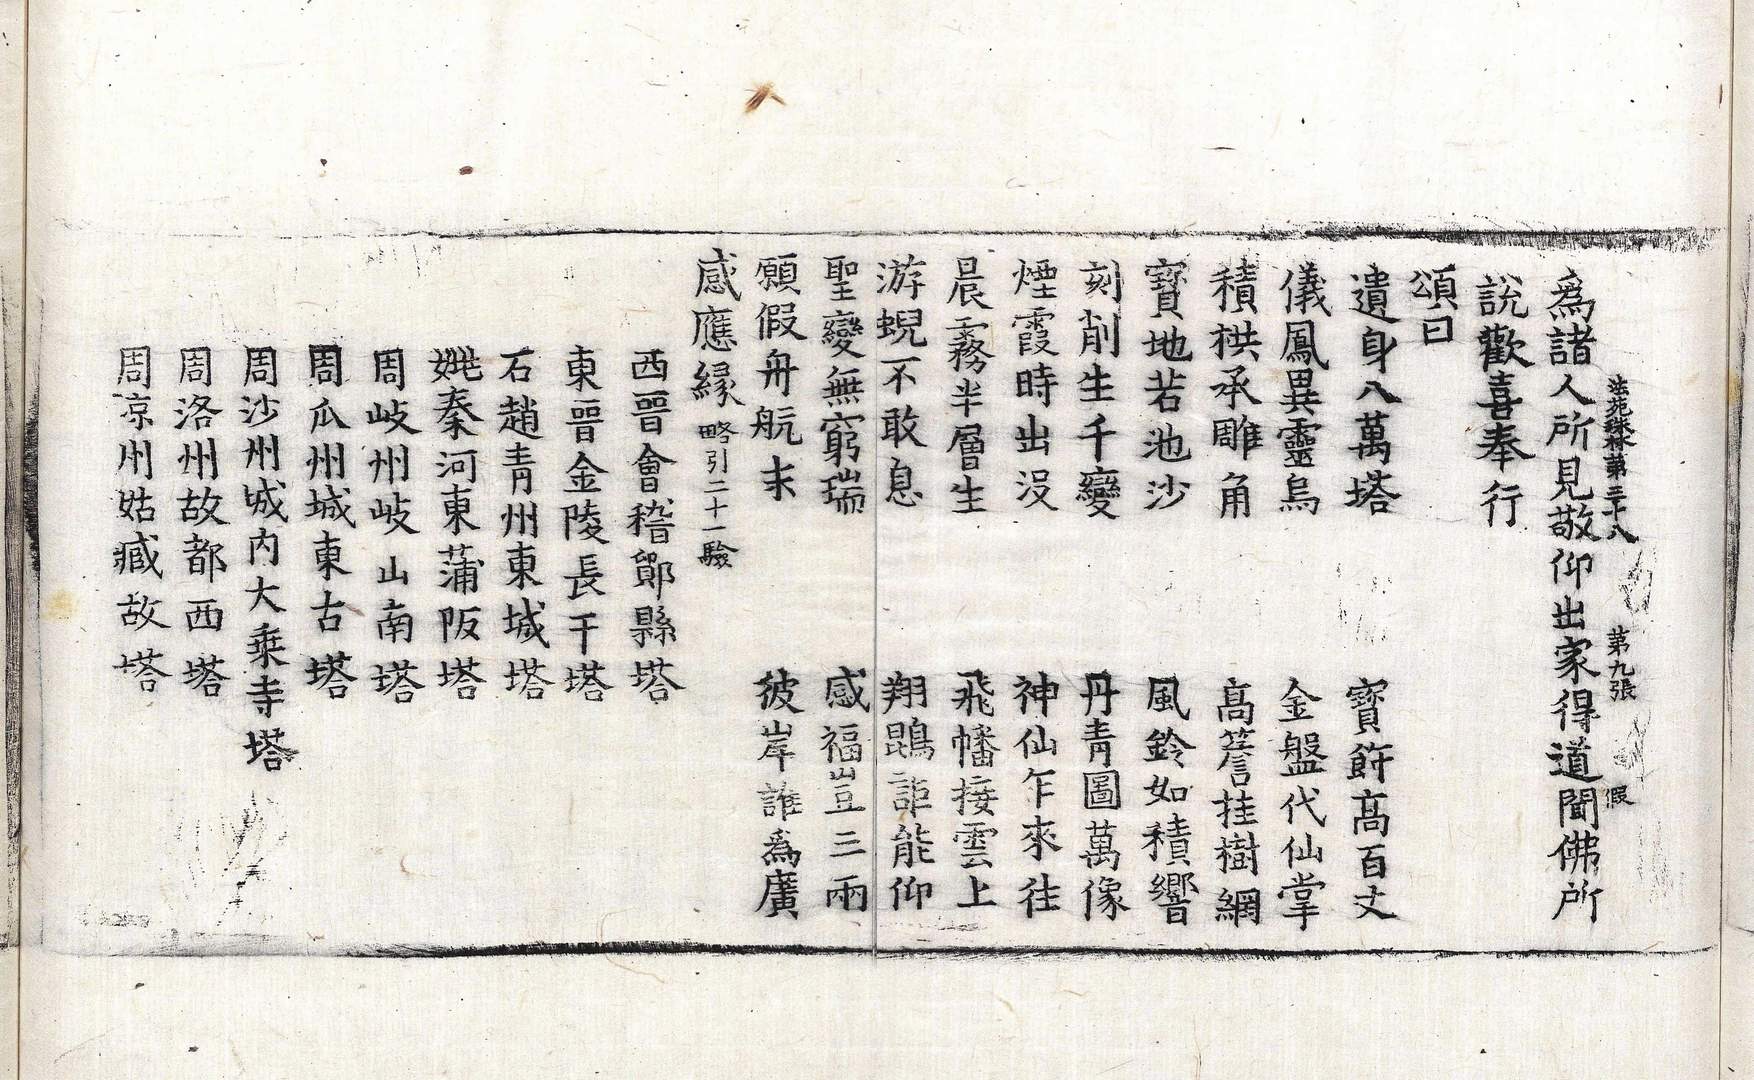 爲諸人所見敬仰出家得道聞佛所
法苑珠林第三十八 第九張 假
說歡喜奉行
頌曰
遺身八萬塔 寶飾高百丈
儀鳳異靈烏 金盤代仙掌
積栱承雕角 高簷挂樹網
寶地若池沙 風鈴如積響
刻削生千變 丹青圖萬像
煙霞時出沒 神仙乍來往
晨霧半層生 飛幡接雲上
游蜺不敢息 翔鵾詎能仰
聖變無窮瑞 感福豈三兩
願假舟航末 彼岸誰爲廣
感應緣 略引二十一驗
西晉會稽鄮縣塔
東晉金陵長干塔
石趙青州東城塔
姚秦河東蒲阪塔
周岐州岐山南塔
周瓜州城東古塔
周沙州城內大乘寺塔
周洛州故都西塔
周涼州姑臧故塔